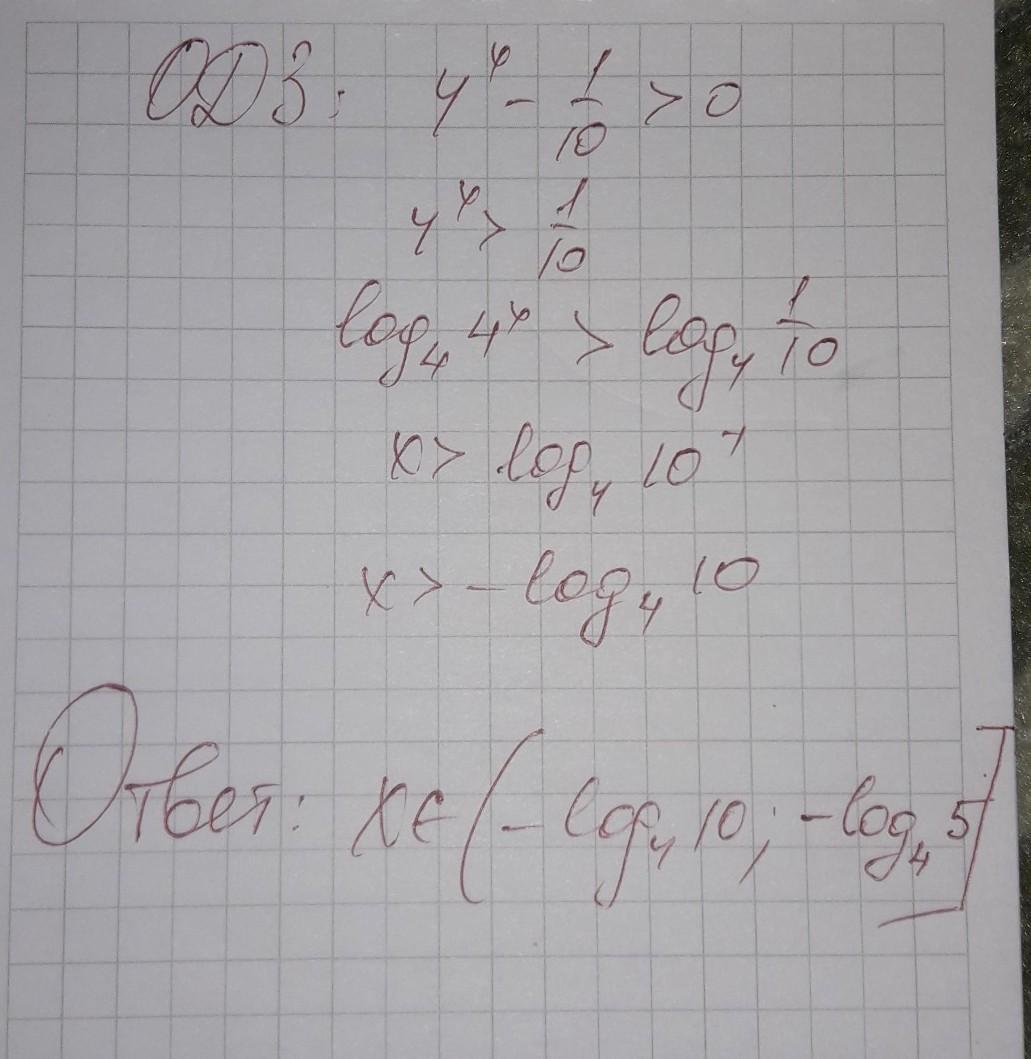 ОДЗ: 4ˣ - 1/10 > 0
4ˣ > 1/10
log₄ 4ˣ > log₄ 1/10
x > log₄ 10⁻¹
x > - log₄ 10
Ответ: x ∈ (- log₄ 10; - log₄ 5]